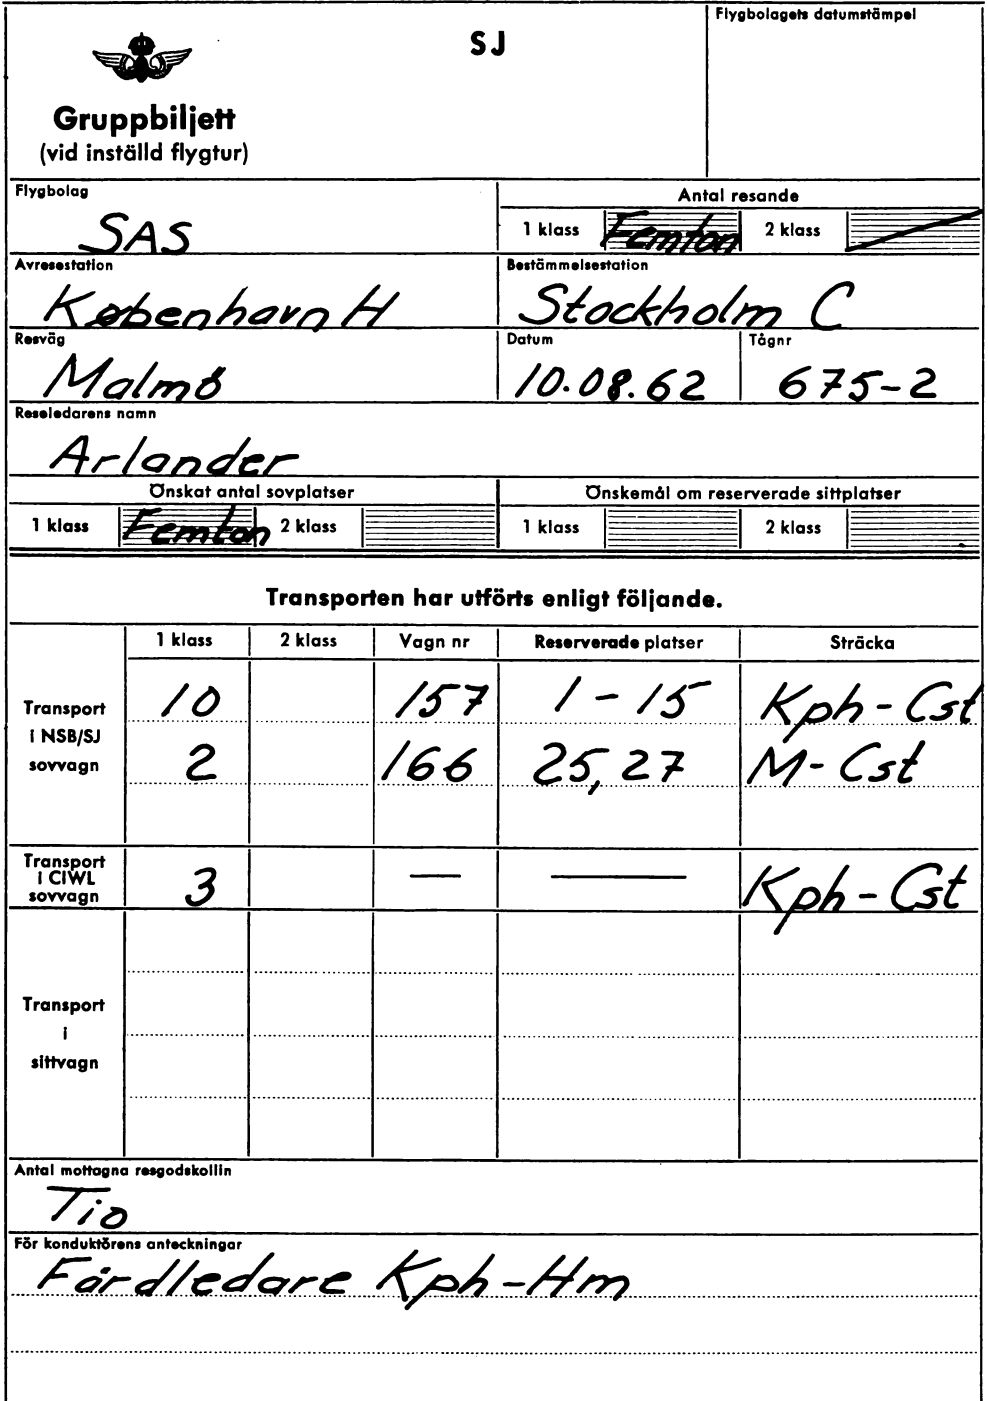 Flygbolagets datumstämpel
SJ
Gruppbiljett
(vid inställd flygtur)
Flygbolag
SAS
Antal resande
1 klass Femton 2 klass
Avresestation
København H
Bestämmelsestation
Stockholm C
Resväg
Malmö
Datum
10.08.62
Tågnr
675-2
Reseledarens namn
Arlander
Önskat antal sovplatser
1 klass Femton 2 klass
Önskemål om reserverade sittplatser
1 klass 2 klass
Transporten har utförts enligt följande.
1 klass 2 klass Vagn nr Reserverade platser Sträcka
Transport
i NSB/SJ
sovvagn
10 157 1-15 Kph-Cst
2 166 25, 27 M-Cst
Transport
i CIWL
sovvagn
3 — — Kph-Cst
Transport
i
sittvagn
Antal mottagna resgodskollin
Tio
För konduktörens anteckningar
Färdledare Kph-Hm